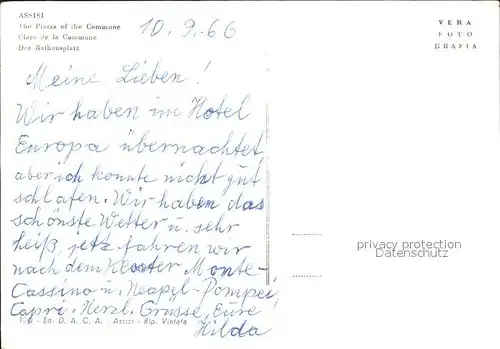 ASSISI
The Piazza of the Commune
Place de la Commune
Der Rathausplatz
VERA
FOTO
GRAFIA
10.9.66
Meine Lieben!
Wir haben im Hotel
Europa übernachtet,
aber ich konnte nicht gut
schlafen. Wir haben das
schönste Wetter u. sehr
heiß, jetz fahren wir
nach dem Kloster Monte-
Cassino u. Neapel-Pompei,
Capri. Herzl. Grüsse, Eure
Hilda
Ed. D. A. C. A. - Assisi - Rip. Vietata
privacy protection
Datenschutz